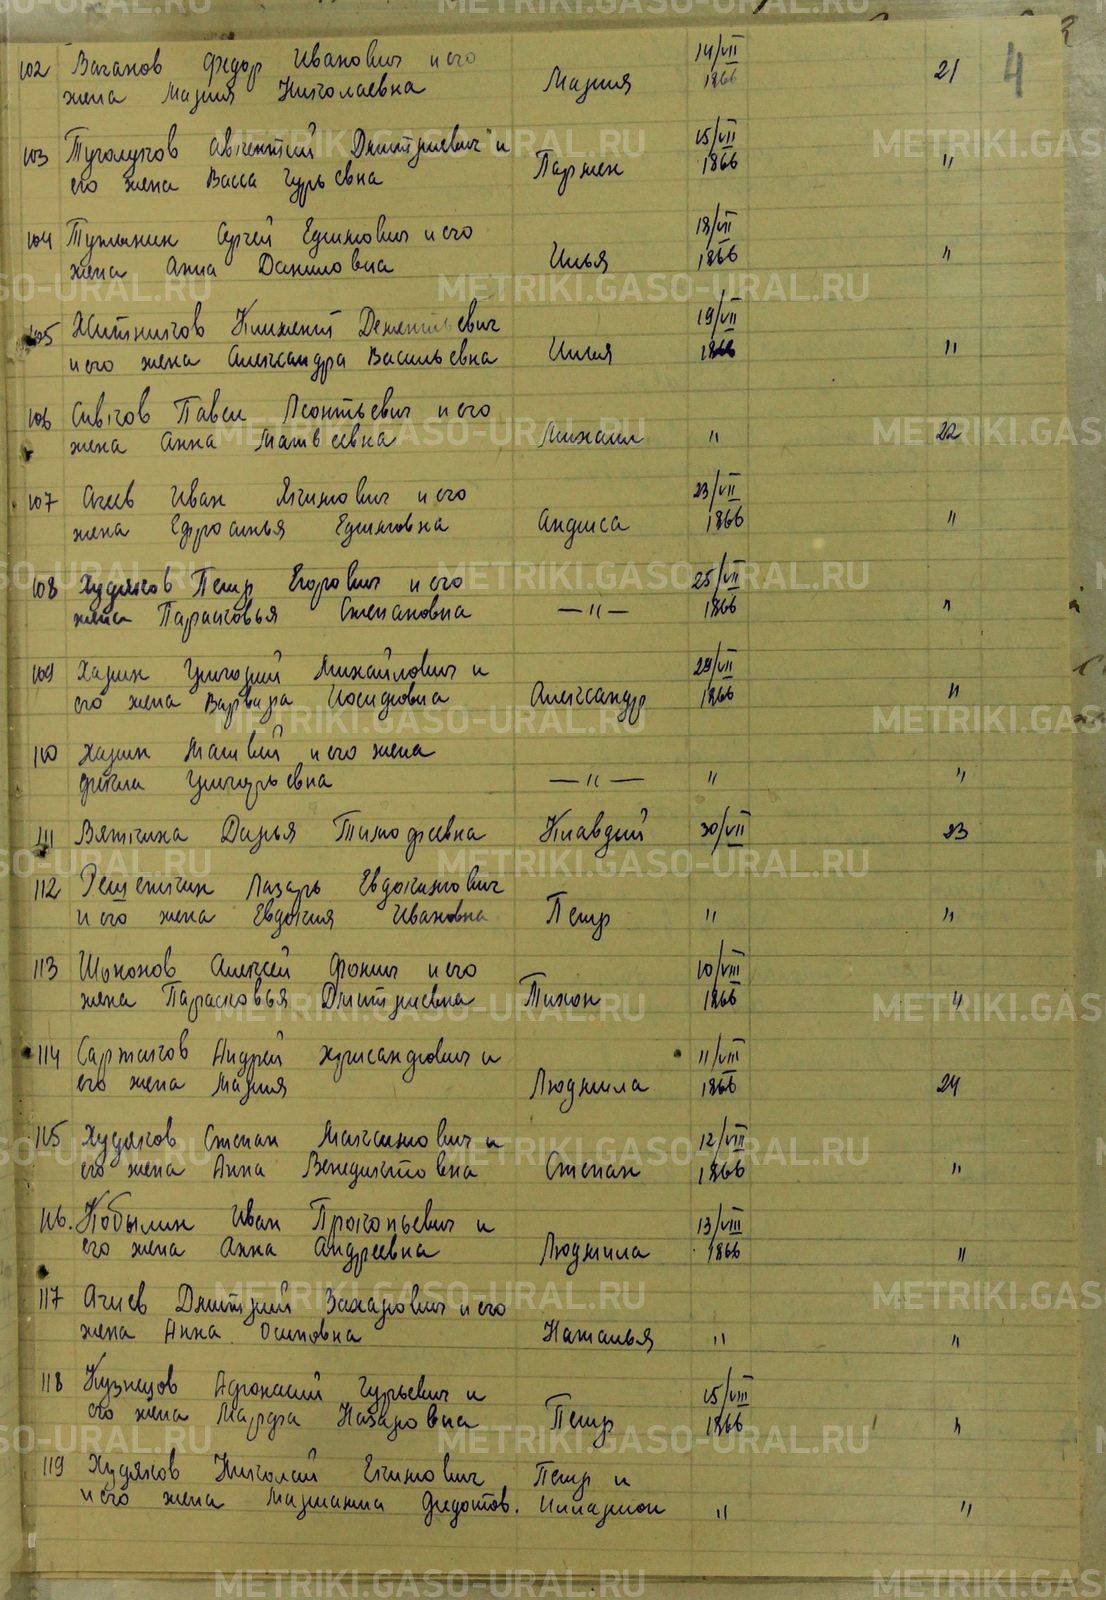 4
102 Ваганов Федор Иванович и его 14/VII
жена Мария Николаевна Мария 1866 21
103 Дмитриевич и 15/VII
его жена Васса Гурьевна Пармен 1866 "
104 Сергей Ефимович и его 18/VII
жена Анна Даниловна Илья 1866 "
105 Житников Климент Дементьевич 19/VII
и его жена Александра Васильевна Илья 1866 "
106 Сивков Павел Леонтьевич и его
жена Анна Матвеевна Михаил " 22
107 Агеев Иван Якимович и его 23/VII
жена Ефросинья Ефимовна Анфиса 1866 "
108 Худяков Петр Егорович и его 25/VII
жена Парасковья Степановна — " — 1866 "
109 Харин Григорий Михайлович и 29/VII
его жена Варвара Иосифовна Александр 1866 "
110 Харин Матвей и его жена
Фекла Григорьевна — " — " "
111 Вяткина Дарья Тимофеевна Клавдий 30/VII 23
112 Решеткин Лазарь Евдокимович
и его жена Евдокия Ивановна Петр " "
113 Шонохов Алексей Фокич и его 10/VIII
жена Парасковья Дмитриевна Тихон 1866 "
114 Андрей Хрисанфович и 11/VIII
его жена Мария Людмила 1866 24
115 Худяков Степан Максимович и 12/VIII
его жена Анна Венедиктовна Степан 1866 "
116. Кобылин Иван Прокопьевич и 13/VIII
его жена Анна Андреевна Людмила 1866 "
117 Агеев Дмитрий Захарович и его
жена Анна Осиповна Наталья " "
118 Кузнецов Афонасий Гурьевич и 15/VIII
его жена Марфа Назаровна Петр 1866 "
119 Худяков Николай Екимович Петр и
и его жена Мариамна Федотов. Илларион " "
METRIKI.GASO-URAL.RU